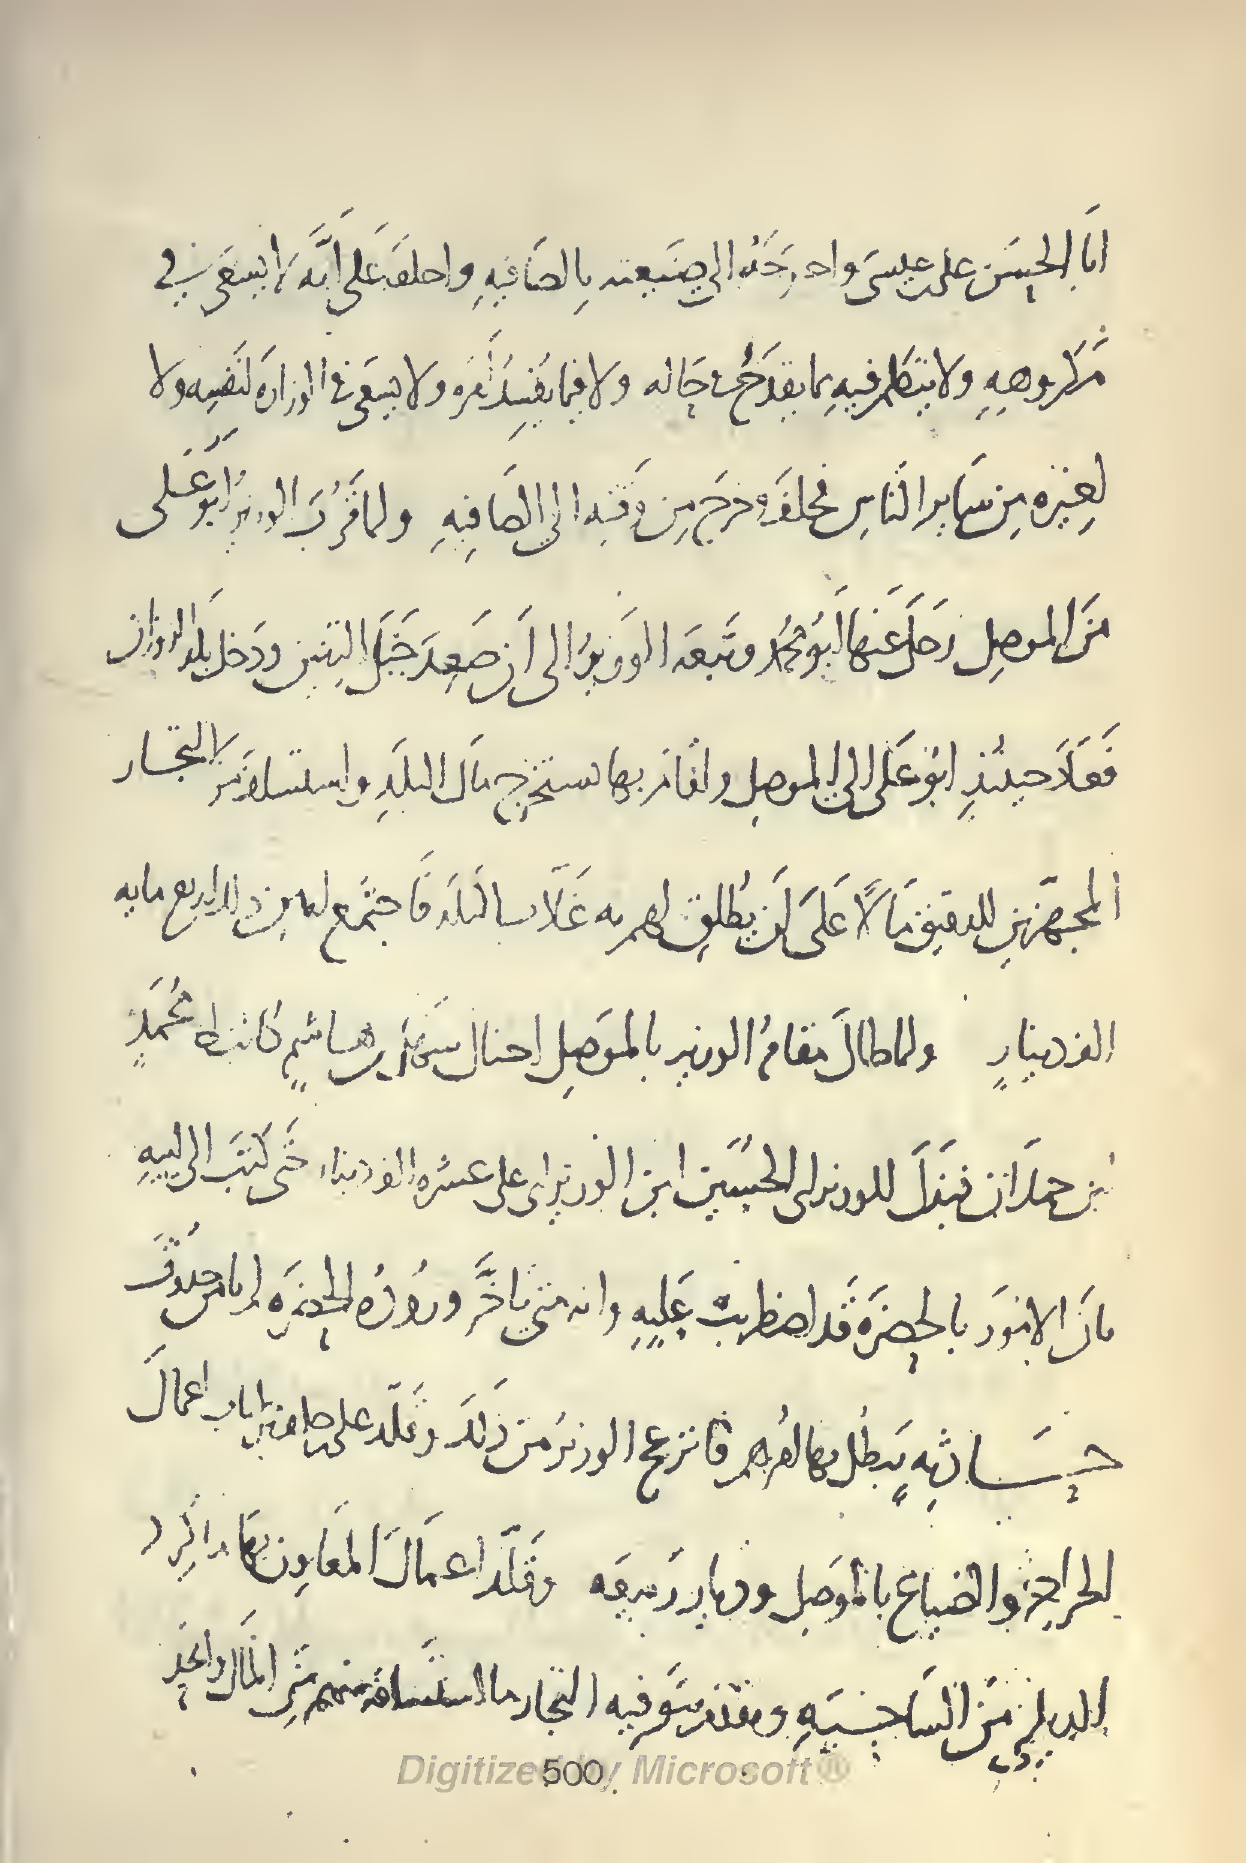 ابا الحسن على بن عيسى واخرجه الى ضيعته بالصافيه واحلفه على انه لا يسعى في
مكروهه ولا يتكلم فيه بما يقدح في حاله ولا فيما يفسد امره ولا يسعى في الوزارة لنفسه ولا
لغيره من ساير الناس فحلف وخرج من وقته الى الصافيه ولما قرب الوزير ابو على
من الموصل رحل عنها ابو محمد وتبعه الوزير الى ان صعد جبل التنين ودخل بلد الزوزان
فعاد حينئذ ابو على الى الموصل واقام بها يستخرج مال البلد واستسلف من التجار
المجهزين للدقيق مالا على ان يطلق لهم به غلات البلد فاجتمع له من ذلك اربع مايه
الف دينار ولما طال مقام الوزير بالموصل احتال سهل بن هاشم كاتب ابى محمد
ابن حمدان فبذل للوزير ابى الحسين ابن الوزير ابى على عشرة الف دينار حتى كتب الى ابيه
بان الامور بالحضرة قد اضطربت عليه وانه متى تاخر وروده الحضرة لم يامن حدوث
حادثه يبطل بها امرهم فانزعج الوزير من ذلك وقلد على بن خلف بن طياب اعمال
الخراج والضياع بالموصل وديار ربيعه وقلد اعمال المعاون بها ماكرد
الديلمي من الساجيه يستوفيه التجار ما استسلفه منهم من المال واخذ
500
Digitized by Microsoft ®